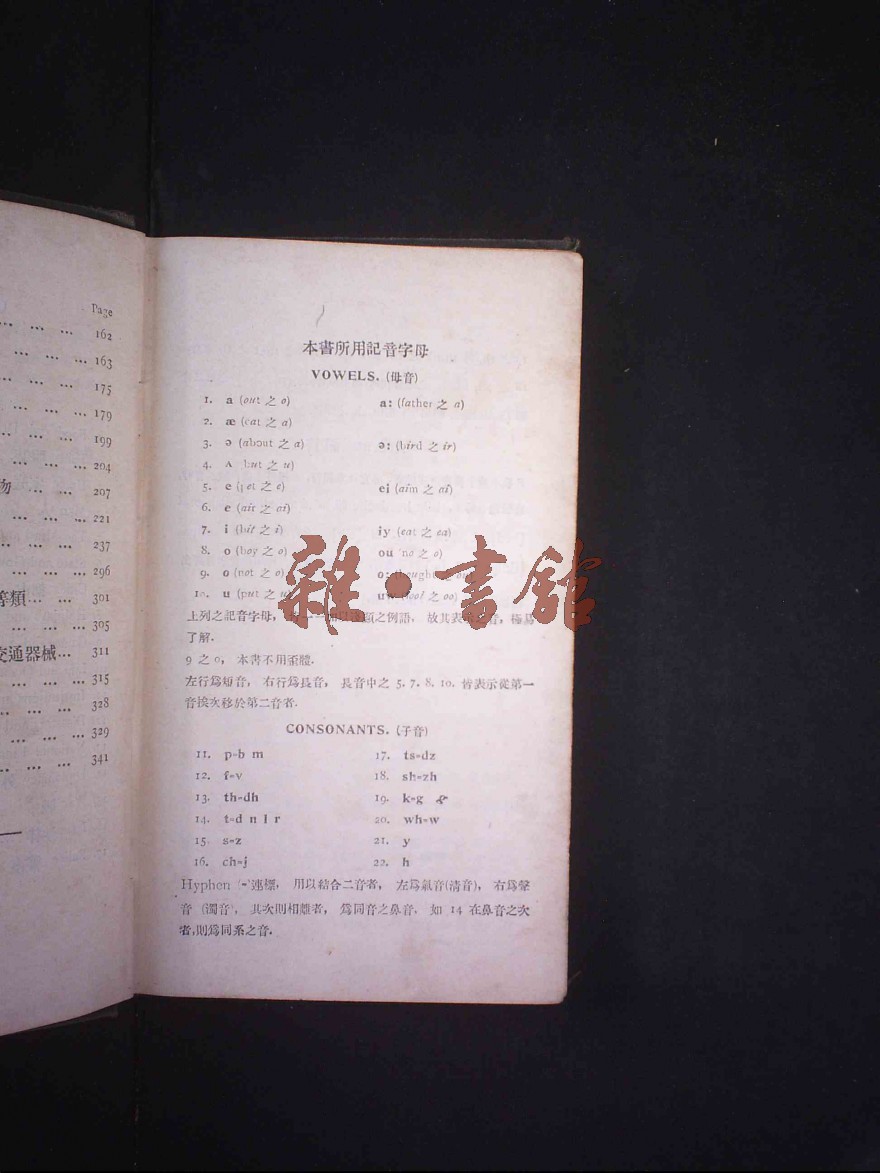 Page
... ... ... 162
... ... ... 163
... ... ... 175
... ... ... 179
... ... ... 199
... ... ... 204
物 ... ... ... 207
... ... ... 221
... ... ... 237
... ... ... 296
等類... ... ... 301
... ... ... 305
交通器械... 311
... ... ... 315
... ... ... 328
... ... ... 329
... ... ... 341
本書所用記音字母
VOWELS. (母音)
1. a (out 之 o) a: (father 之 a)
2. æ (cat 之 a)
3. ə (about 之 a) ə: (bird 之 ir)
4. ʌ but 之 u)
5. e ( 之 e) ei (aim 之 ai)
6. e (air 之 ai)
7. i (bit 之 i) iy (eat 之 ea)
8. o (boy 之 o) ou no 之 o)
9. o (not 之 o) o: thought ou
10. u (put 之 u) uw 之 oo)
上列之記音字母, 之例語, 故其表示之音, 極易
了解.
9 之 o, 本書不用
左行爲短音, 右行爲長音, 長音中之 5. 7. 8. 10. 皆表示從第一
音挨次移於第二音者.
CONSONANTS. (子音)
11. p-b m 17. ts-dz
12. f-v 18. sh-zh
13. th-dh 19. k-g
14. t-d n l r 20. wh-w
15. s-z 21. y
16. ch-j 22. h
Hyphen '-'連標, 用以結合二音者, 左爲氣音(清音), 右爲聲
音 (濁音, 其次則相離者, 爲同音之鼻音. 如 14 在鼻音之次
者,則爲同系之音.
雜·書館